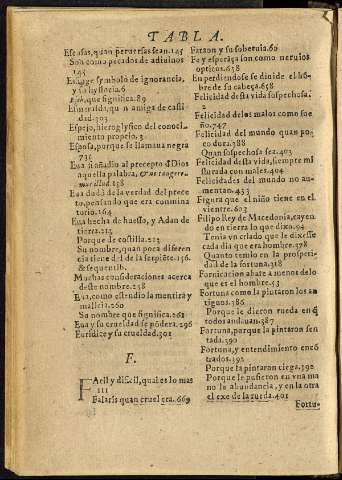 TABLA.
Escusas, quan peruersas sean. 145
Son como pecados de adiuinos
143
symbolo de ignorancia,
y su hystoria. 6
que significa. 89
Esmeralda, quan amiga de castidad. 303
Espejo, hieroglyfico del conocimiento proprio. 3
Esposa, porque se llama negra
731
Eua añadio al precepto đ Dios
aquella palabra, &
238
Eua dudò de la verdad del precepto, pensando que era conminatorio. 164
Eua hecha de huesso, y Adan de
tierra. 213
Porque de costilla. 213
Su nombre, quan poca diferencia tiene del de la serpiẽte. 156.
& sequentib.
Muchas consideraciones acerca
deste nombre. 258
Eua, como estendio la mentira y
malicia. 260
Su nombre que significa. 261
Eua y su crueldad se põdera. 296
Euridice y su crueldad. 302
F.
Facil y dificil, qual es lo mas
111
Falaris quan cruel era. 669
Faraon y su soberuia. 60
Fe y esperãça son como neruios
opticos. 658
En perdiendose se diuide el hõbre de su cabeça. 658
Felicidad desta vida sospechosa.
2
Felicidad de los malos como sueño. 747
Felicidad del mundo quan poco dura. 388
Quan sospechosa sea. 403
Felicidad desta vida, siempre misturada con males. 404
Felicidades del mundo no aumentan. 433
Figura que el niño tiene en el
vientre. 603
Filipo Rey de Macedonia, cayendo en tierra lo que dixo. 94
Tenia vn criado que le dixesse
cada dia que era hombre. 378
Quanto temio en la prosperidad de la fortuna. 386
Fornicacion abate a menos de lo
que es el hombre. 53
Fortuna como la pintaron los antiguos. 386
Porque le dieron rueda en q̃
todos anduuan. 387
Fortuna, porque la pintaron sentada. 390
Fortuna, y entendimiento encõtrados. 392
Porque la pintaron ciega. 392
Porque le pusieron en vna mano la abundancia, y en la otra
el exe de la rueda. 401
Fortu-